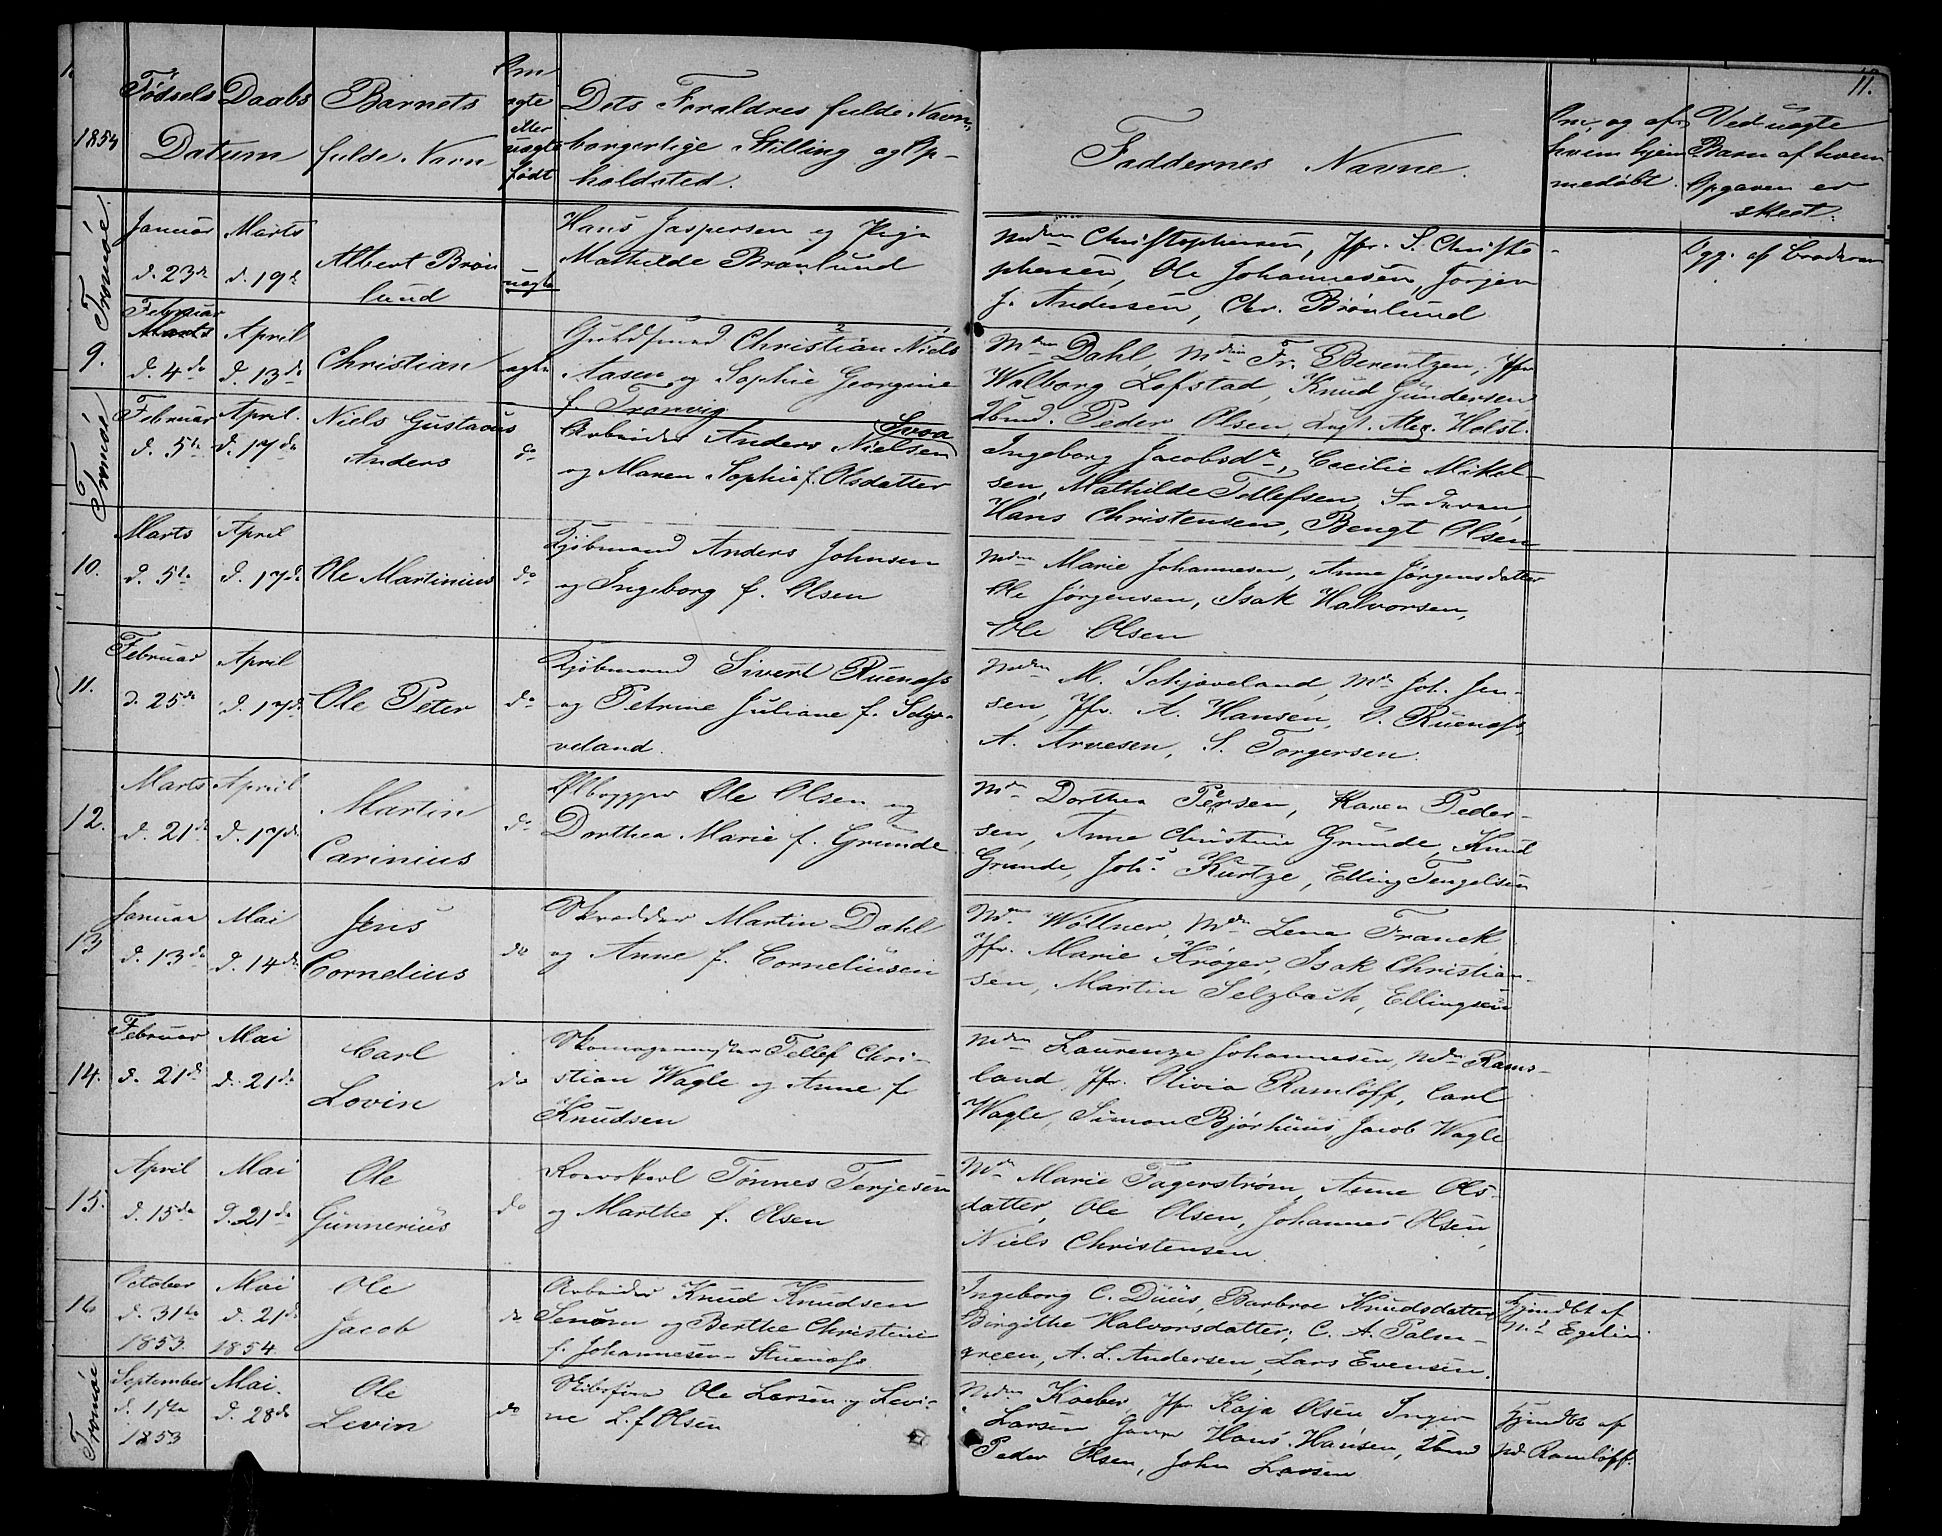 11.
1854
Fødsels Daabs Datum
Barnets fulde Navn
Om ægte eller uægte født
Dets Forældres fulde Navn, borgerlige Stilling og Opholdsted.
Faddernes Navne.
Om, og af hvem hjemmedøbt.
Ved uægte Barn af hvem Opgaven er skeet.
Tromøe.
Januar d. 23de
Marts d. 19de
Albert Brönlund
uægte
Hans Jaspersen og Pige
Mathilde Brönlund
Mdm Christophersen, Jfr. S. Christo-
phersen, Ole Johannesen, Jørgen
J. Andersen, Chr. Brönlund
Opg. af Moderen
9.
Februar Marts d. 4de
April d. 13de
Christian
ægte
Guldsmed Christian Niels
Aasen og Sophie Georgine
f. Tranvig
Mdm Dahl, Mdm Fr. Berentzen, Jfr
Walborg Lofstad, Knud Gundersen
Peder Olsen, Alex. Holst.
Tromøe
Februar d. 5te
April. d. 17de
Niels Gustavus
Anders
do
Svoa
Arbeider Anders Nielsen
og Maren Sophie f. Olsdatter
Ingeborg Jacobsdr, Cecilie Mikel-
sen, Mathilde Tellefsen, Faderen,
Hans Christensen, Bengt Olsen
10.
Marts d. 5te
April d. 17de
Ole Martinius
do
Kjøbmand Anders Johnsen
og Ingeborg f. Olsen
Mdm Marie Johannesen, Anne Jørgensdatter
Ole Jørgensen, Isak Halvorsen,
Ole Olsen
11.
Februar d. 25de
April d. 17de
Ole Peter
do
Kjøbmand Sivert Ruenæs
og Petrine Juliane f. Schjø-
veland.
Mdm M. Schjøveland, Mdm Joh. Jen-
sen, Jfr. A. Hansen, O. Ruenæs,
A. Arvesen, S. Torgersen.
12.
Marts d. 21de
April d. 17de
Martin
Carinius
do
Ølbrygger Ole Olsen og
Dorthea Marie f. Grunde
Mdm Dorthea Persen, Karen Peder-
sen, Anne Christine Grunde, Knud
Grunde, Johs Kurtze, Elling Tengelsen
13
Januar d. 13de
Mai d. 14de
Jens
Cornelius
do
Skrædder Martin Dahl
og Anne f. Corneliusen
Md. Wöllner, Mdm Lena Franck,
Jfr. Marie Krøger, Isak Christian-
sen, Martin Selzbach, Ellingsen
14.
Februar d. 21de
Mai d. 21de
Carl
Lovin
do
Skomagermester Tellef Chri-
stian Wagle og Anne f
Knudsen
Mdm Laurenze Johannesen, Mdm Rams-
land, Jfr. Olivia Ramlöff, Carl
Wagle, Simon Bjørhuus, Jacob Wagle
15.
April d. 15de
Mai d. 21de
Ole
Gunnerius
do
Tønnes Terjesen
og Marthe f. Olsen
Mdm Marie Fagerstrøm, Anne Ols-
datter, Ole Olsen, Johannes Olsen,
Niels Christensen
16
October d. 31te 1853
Mai d. 21de 1854
Ole
Jacob
do
Arbeider Knud Knudsen
Senum og Berthe Christine
f. Johannesen Stuenæs.
Ingeborg C. Duus, Barbroe Knudsdatter
Birgithe Halvorsdatter, C. A. Palm-
green, A. L. Andersen, Lars Evensen.
Hjmdbt af
Md. Egelin
Tromøe
September d. 17de 1853
Mai. d. 28de
Ole
Levin
do
Skibsfører Ole Larsen og Levi-
ne L. f Olsen
Mdm Koeber Jfr Kaja Olsen Inger
Larsen Hans Hansen,
Peder Olsen, John Larsen
Hjmdbt af
Md. Ramlöff.